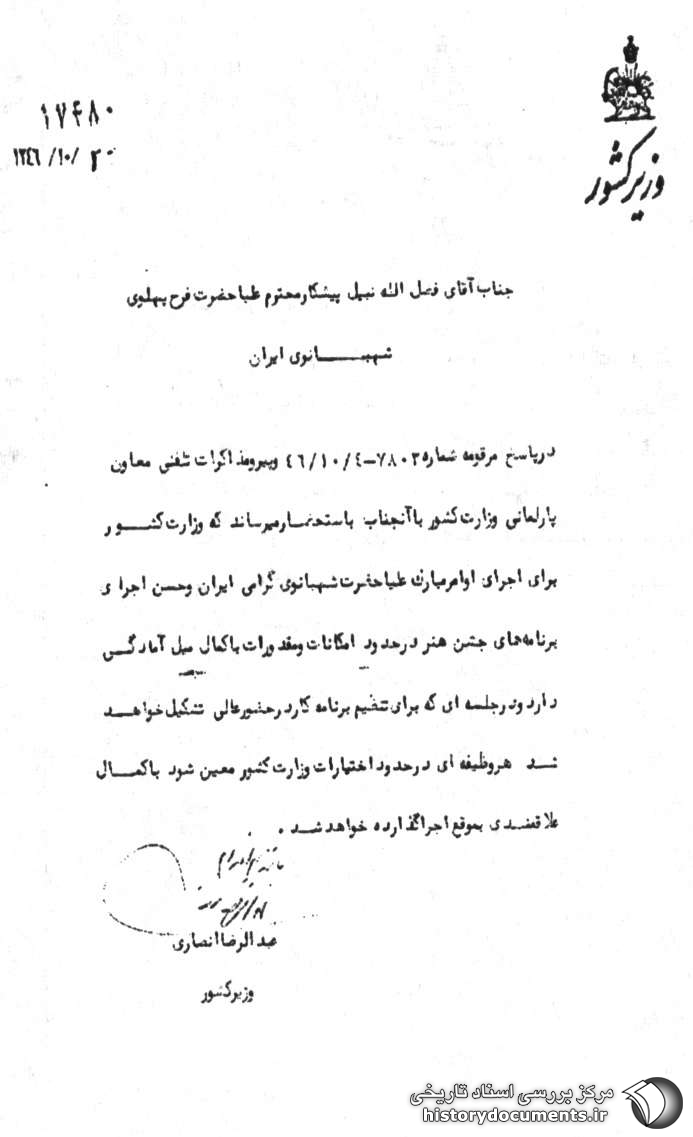 وزیر کشور
۱۷۴۸۰
۱۳٤٦/۱۰/۲۰
جناب آقای فضل الله نبیل پیشکار محترم علیاحضرت فرح پهلوی
شهبـــــانوی ایران
درپاسخ مرقومه شماره ۷۸۰۲-٤/۱۰/٤٦ وپیرومذاکرات تلفنی معاون
پارلمانی وزارت کشور باآنجناب باستحضارمیرساند که وزارت کشـــور
برای اجرای اوامرمبارک علیاحضرت شهبانوی گرامی ایران وحسن اجرای
برنامه‌های جشن هنر درحدود امکانات ومقدورات باکمال میل آمادگی
دارد ودرجلسه ای که برای تنظیم برنامه کار درحضورعالی تشکیل خواهـد
شـــد هروظیفه ای درحدود اختیارات وزارت کشور معین شود باکمـــال
علاقمندی بموقع اجراگذارده خواهد شد .
عبدالرضا انصاری
وزیرکشور
مرکز بررسی اسناد تاریخی
historydocuments.ir